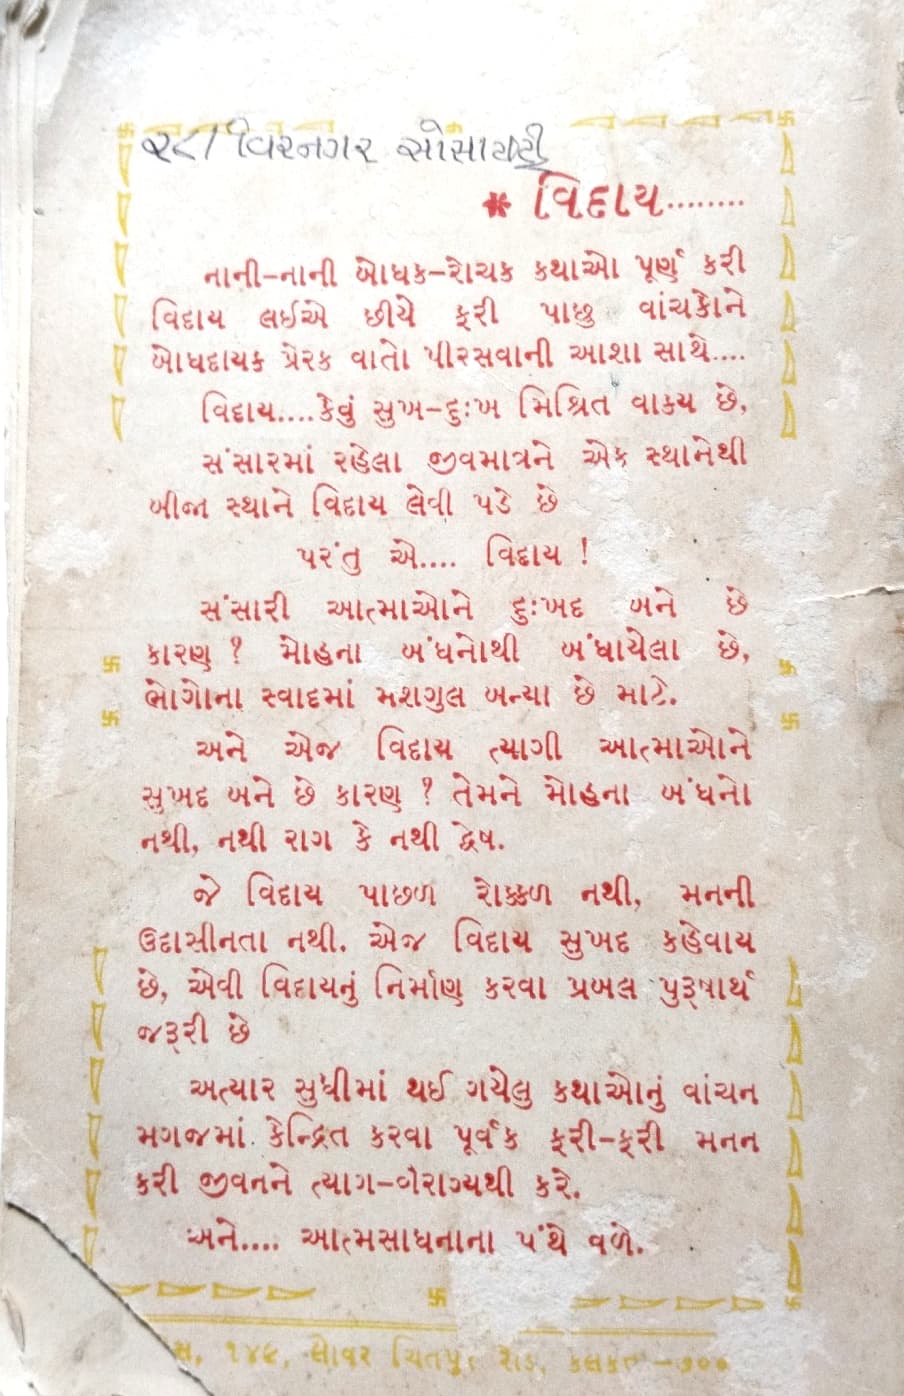 ૨૮/ વિરનગર સોસાયટી
* વિદાય........
નાની-નાની બોધક-રોચક કથાઓ પૂર્ણ કરી
વિદાય લઈએ છીયે ફરી પાછુ વાંચકોને
બોધદાયક પ્રેરક વાતો પીરસવાની આશા સાથે....
વિદાય....કેવું સુખ-દુઃખ મિશ્રિત વાકય છે,
સંસારમાં રહેલા જીવમાત્રને એક સ્થાનેથી
બીજા સ્થાને વિદાય લેવી પડે છે
પરંતુ એ.... વિદાય !
સંસારી આત્માઓને દુઃખદ બને છે
કારણ ? મોહના બંધનોથી બંધાયેલા છે,
ભોગોના સ્વાદમાં મશગુલ બન્યા છે માટે.
અને એજ વિદાય ત્યાગી આત્માઓને
સુખદ બને છે કારણ ? તેમને મોહના બંધનો
નથી, નથી રાગ કે નથી દ્વેષ.
જે વિદાય પાછળ રોક્કળ નથી, મનની
ઉદાસીનતા નથી. એજ વિદાય સુખદ કહેવાય
છે, એવી વિદાયનું નિર્માણ કરવા પ્રબલ પુરૂષાર્થ
જરૂરી છે
અત્યાર સુધીમાં થઈ ગયેલુ કથાઓનું વાંચન
મગજમાં કેન્દ્રિત કરવા પૂર્વક ફરી-ફરી મનન
કરી જીવનને ત્યાગ-વૈરાગ્યથી કરે.
અને.... આત્મસાધનાના પંથે વળે.
સ, ૧૪૬, લોવર ચિતપુર રોડ, કલકત્તા-૭૦૦